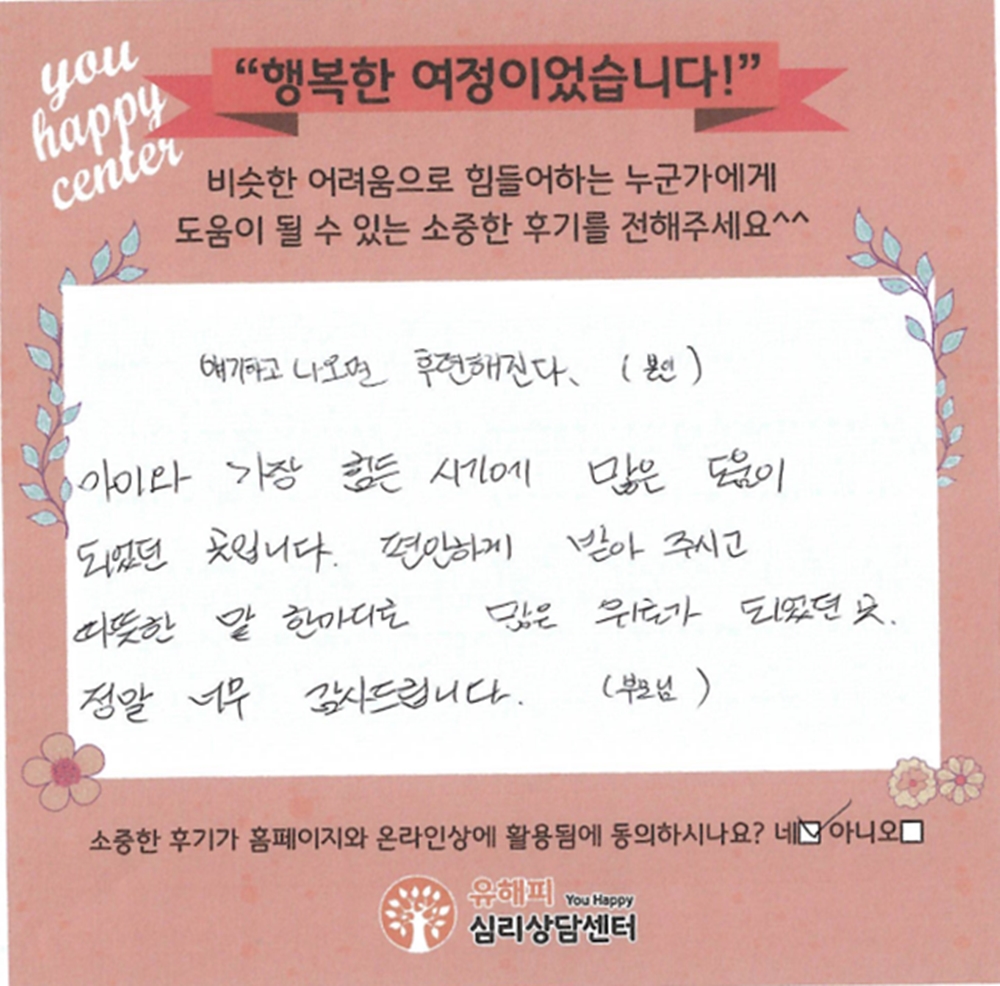 you
happy
center
“행복한 여정이었습니다!”
비슷한 어려움으로 힘들어하는 누군가에게
도움이 될 수 있는 소중한 후기를 전해주세요^^
얘기하고 나오면 후련해진다. (본인)
아이와 가장 힘든 시기에 많은 도움이
되었던 곳입니다. 편안하게 받아 주시고
따뜻한 말 한마디로 많은 위로가 되었던 곳.
정말 너무 감사드립니다. (부모님)
소중한 후기가 홈페이지와 온라인상에 활용됨에 동의하시나요? 네☑ 아니오☐
유해피 You Happy
심리상담센터